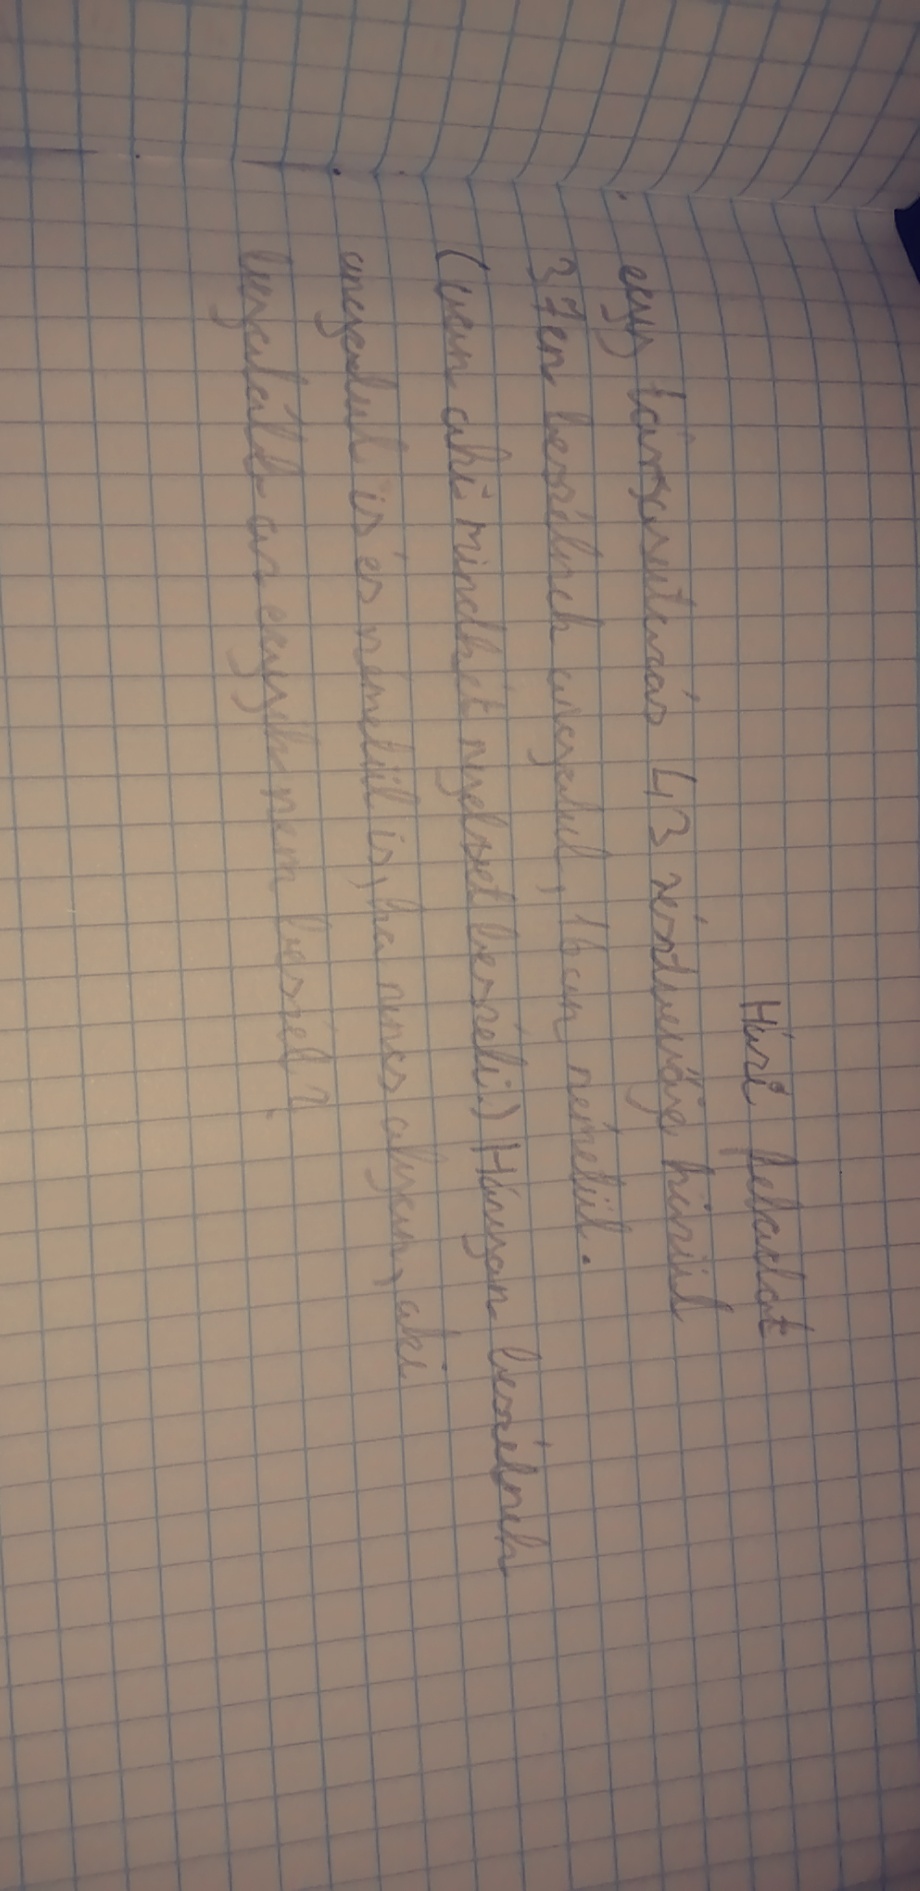 Házi feladat
egy társasutazás 43 résztvevője közül
37en beszélnek angolul, 16an németül.
(van aki mindkét nyelvet beszéli.) Hányan beszélnek
angolul is és németül is, ha nincs olyan, aki
legalább az egyiken nem beszél?